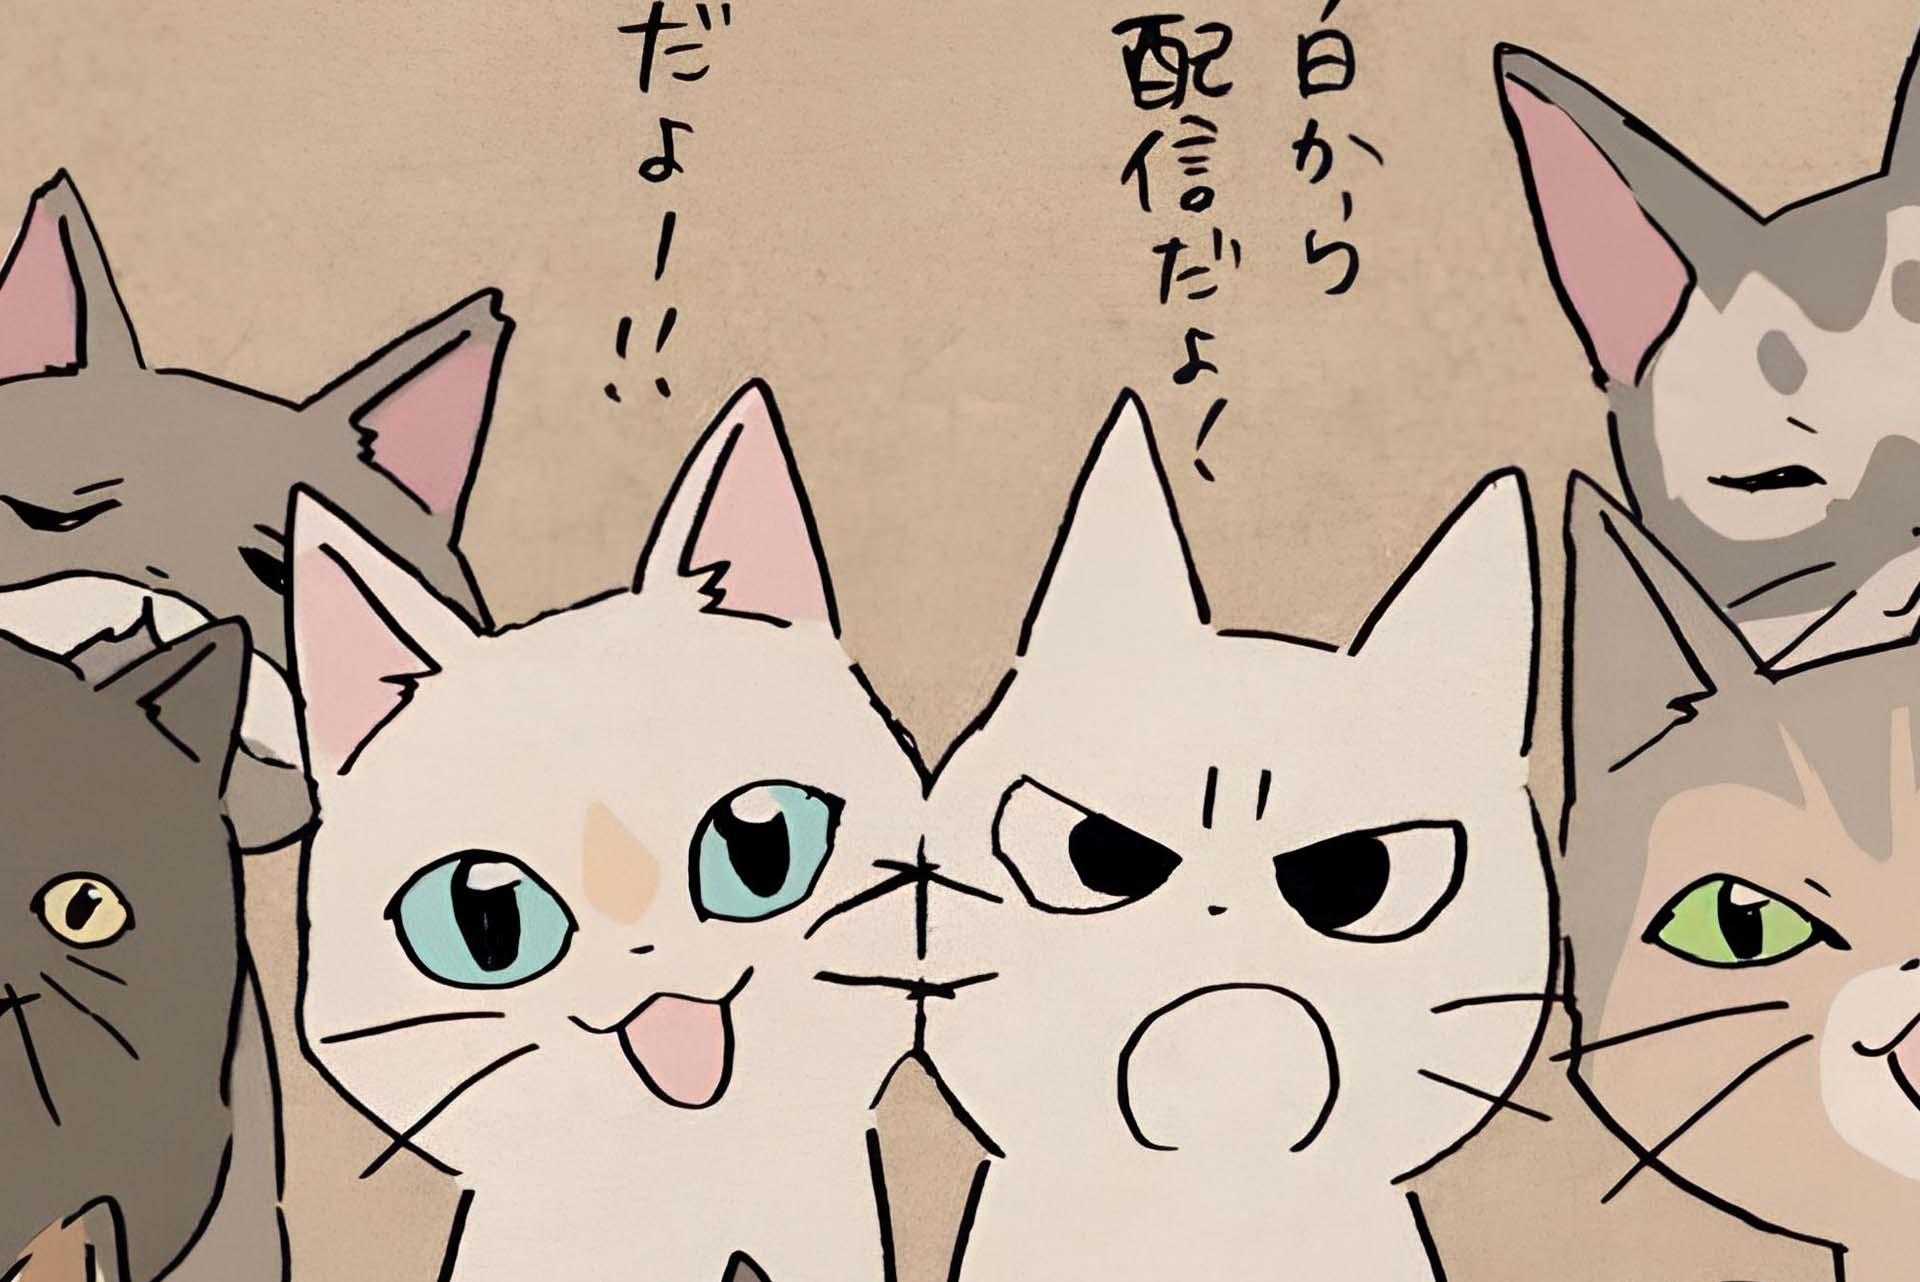 日から
配信だよ〜
だよー!!